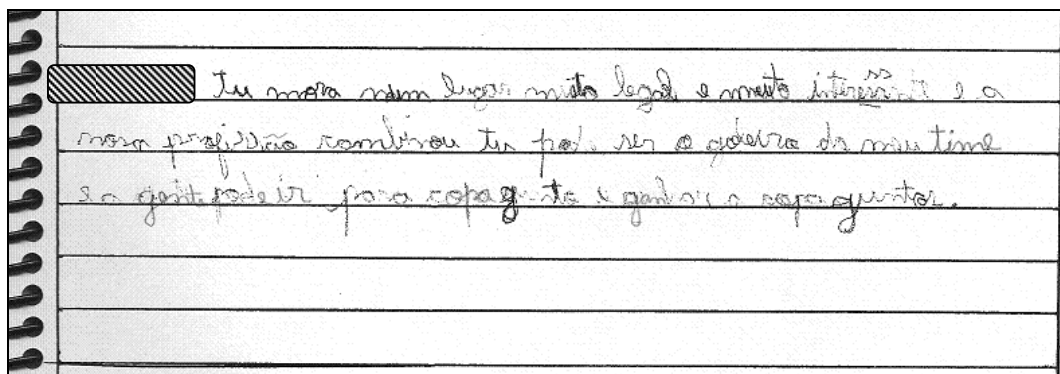 tu mora num lugar muito legal e muito interessante e a
nosa profissão combinou tu pode ser o goleiro do meu time
e a gente pode ir para copa gunto e ganhar a copa guntos.